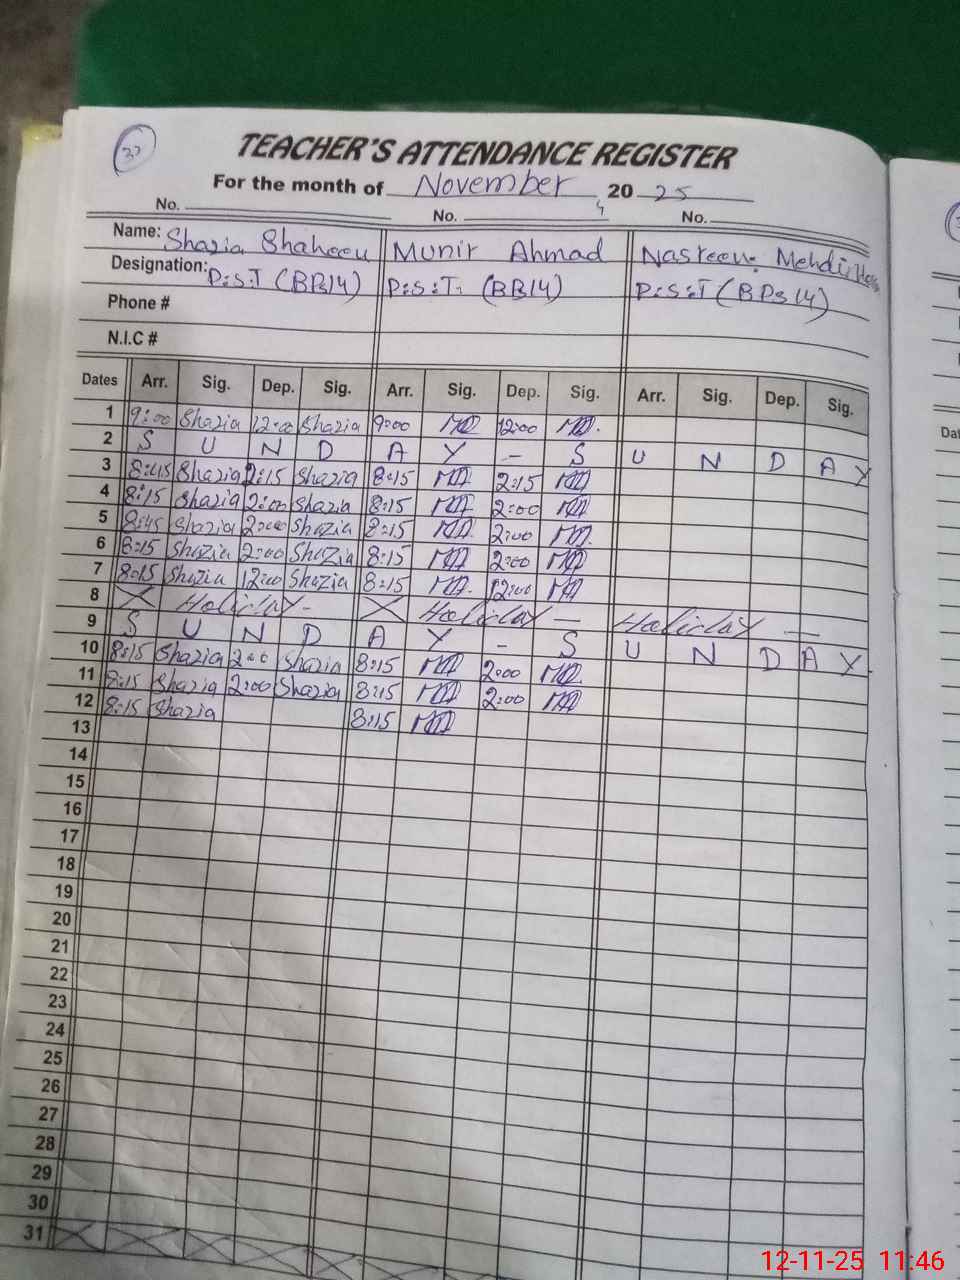 37
TEACHER'S ATTENDANCE REGISTER
For the month of November 2025
No. No. No.
Name: Shazia Shaheen Munir Ahmad Nasreen Mehdi
Designation: P:S:T (BB14) P:S:T. (BB14) P:S:T (BPS 14)
Phone #
N.I.C #
Dates Arr. Sig. Dep. Sig. Arr. Sig. Dep. Sig. Arr. Sign. Dep. Sig.
1 9:00 Shazia 12:00 Shazia 9:00 MA 12:00 MA.
2 S U N D A Y - S U N D A Y
3 8:45 Shazia 2:15 Shazia 8:15 MA 2:15 MA
4 8:15 Shazia 2:00 Shazia 8:15 MA 2:00 MA
5 8:45 Shazia 2:00 Shazia 8:15 MA 2:00 MA
6 8:15 Shazia 2:00 Shazia 8:15 MA 2:00 MA
7 8:15 Shazia 12:00 Shazia 8:15 MA. 12:00 MA
8 Holiday - Holiday - Holiday -
9 S U N D A Y - S U N D A Y
10 8:15 Shazia 2:00 Shazia 8:15 MA 2:00 MA
11 8:15 Shazia 2:00 Shazia 8:15 MA 2:00 MA
12 8:15 Shazia 8:15 MA
13
14
15
16
17
18
19
20
21
22
23
24
25
26
27
28
29
30
31
12-11-25 11:46